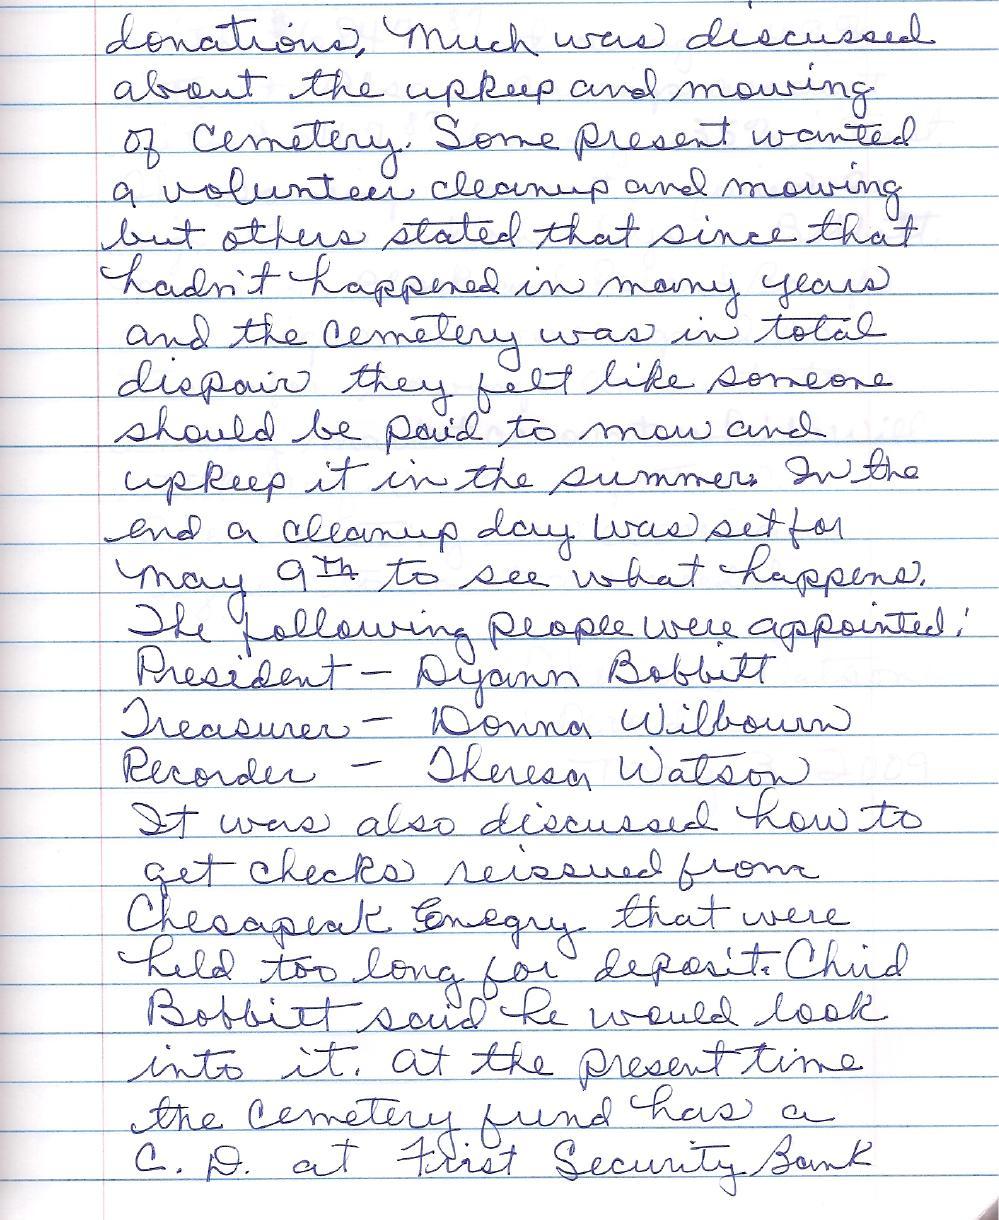 donations, Much was discussed
about the upkeep and mowing
of Cemetery. Some present wanted
a volunteer cleanup and mowing
but others stated that since that
hadn't happened in many years
and the Cemetery was in total
dispair they felt like someone
should be paid to mow and
upkeep it in the summer. In the
end a cleanup day was set for
May 9th to see what happens.
The following people were appointed:
President - Dyann Bobbitt
Treasurer - Donna Wilbourn
Recorder - Theresa Watson
It was also discussed how to
get checks reissued from
Chesapeak Enegry that were
held too long for deposit. Chid
Bobbitt said he would look
into it. At the present time
the Cemetery fund has a
C. D. at First Security Bank